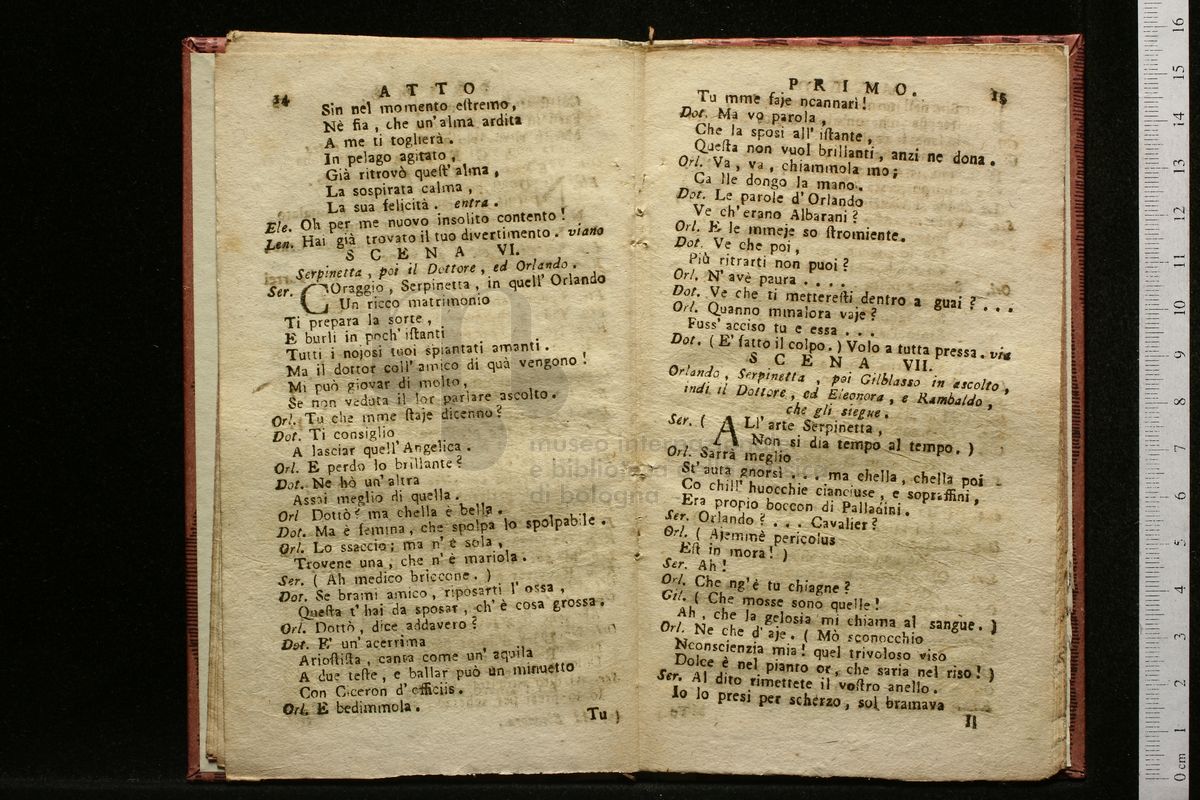 14 ATTO
Sin nel momento estremo,
Nè fia, che un'alma ardita
A me ti toglierà.
In pelago agitato,
Già ritrovò quest'alma,
La sospirata calma,
La sua felicità. entra.
Ele. Oh per me nuovo insolito contento!
Len. Hai già trovato il tuo divertimento. viano
SCENA VI.
Serpinetta, poi il Dottore, ed Orlando.
Ser. COraggio, Serpinetta, in quell' Orlando
Un ricco matrimonio
Ti prepara la sorte,
E burli in poch' istanti
Tutti i nojosi tuoi spiantati amanti.
Ma il dottor coll' amico di quà vengono!
Mi può giovar di molto,
Se non veduta il lor parlare ascolto.
Orl. Tu che mme staje dicenno?
Dot. Ti consiglio
A lasciar quell'Angelica.
Orl. E perdo lo brillante?
Dot. Ne hò un'altra
Assai meglio di quella.
Orl Dottò? ma chella è bella.
Dot. Ma è femina, che spolpa lo spolpabile.
Orl. Lo ssaccio; ma n'è sola,
Trovene una, che n'è mariola.
Ser. (Ah medico briccone.)
Dot. Se brami amico, riposarti l'ossa,
Questa t'hai da sposar, ch'è cosa grossa.
Orl. Dottò, dice addavero?
Dot. E' un'acerrima
Ariostista, canta come un' aquila
A due teste, e ballar può un minuetto
Con Ciceron d'officiis.
Orl. E bedimmola.
Tu
PRIMO. 15
Tu mme faje ncannarì!
Dot. Ma vo parola,
Che la sposi all' istante,
Questa non vuol brillanti, anzi ne dona.
Orl. Va, va, chiammola mo;
Ca lle dongo la mano.
Dot. Le parole d'Orlando
Ve ch'erano Albarani?
Orl. E le mmeje so stromiente.
Dot. Ve che poi,
Più ritrarti non puoi?
Orl. N'avè paura ....
Dot. Ve che ti metteresti dentro a guai? ...
Orl. Quanno mmalora vaje?
Fuss' acciso tu e essa ...
Dot. (E' fatto il colpo.) Volo a tutta pressa. via
SCENA VII.
Orlando, Serpinetta, poi Gilblasso in ascolto,
indi il Dottore, ed Eleonora, e Rambaldo,
che gli siegue.
Ser. (ALl'arte Serpinetta,
Non si dia tempo al tempo.)
Orl. Sarrà meglio
St'auta gnorsì ... ma chella, chella poi
Co chill' huocchie cianciuse, e sopraffini,
Era propio boccon di Palladini.
Ser. Orlando? ... Cavalier?
Orl. (Ajemmè pericolus
Est in mora!)
Ser. Ah!
Orl. Che ng'è tu chiagne?
Gil. (Che mosse sono quelle!
Ah, che la gelosia mi chiama al sangue.)
Orl. Ne che d'aje. (Mò sconocchio
Nconscienzia mia! quel trivoloso viso
Dolce è nel pianto or, che saria nel riso!)
Ser. Al dito rimettete il vostro anello.
Io lo presi per scherzo, sol bramava
Il